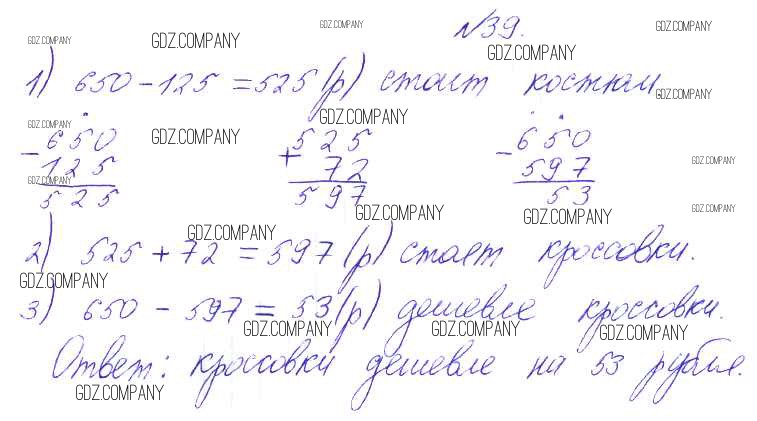 GDZ.COMPANY №39. GDZ.COMPANY
GDZ.COMPANY GDZ.COMPANY GDZ.COMPANY
1) 650 - 125 = 525 (р) стоит костюм
GDZ.COMPANY GDZ.COMPANY
GDZ.COMPANY GDZ.COMPANY
- 650 + 525 - 650
125 72 597
GDZ.COMPANY GDZ.COMPANY
525 597 53
GDZ.COMPANY GDZ.COMPANY GDZ.COMPANY
GDZ.COMPANY
2) 525 + 72 = 597 (р) стоят кроссовки.
GDZ.COMPANY
3) 650 - 597 = 53 (р) дешевле кроссовки.
GDZ.COMPANY GDZ.COMPANY GDZ.COMPANY
Ответ: кроссовки дешевле на 53 рубля.
GDZ.COMPANY